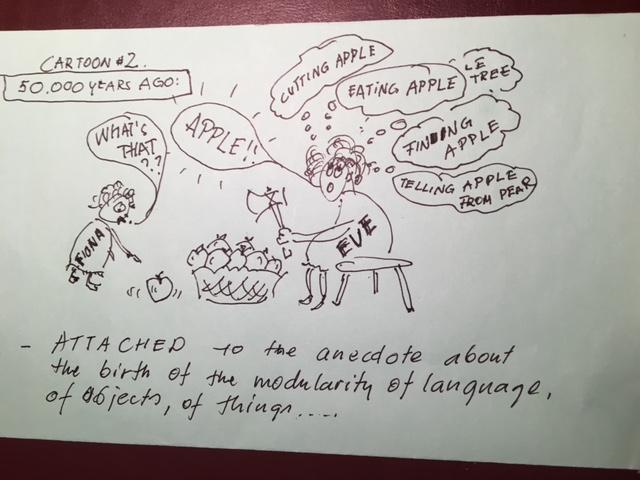 CARTOON #2.
50.000 YEARS AGO:
WHAT'S
THAT
??
APPLE!!
CUTTING APPLE
EATING APPLE
LE
TREE
FINDING
APPLE
TELLING APPLE
FROM PEAR
FIONA
EVE
- ATTACHED to the anecdote about
the birth of the modularity of language,
of objects, of things.....